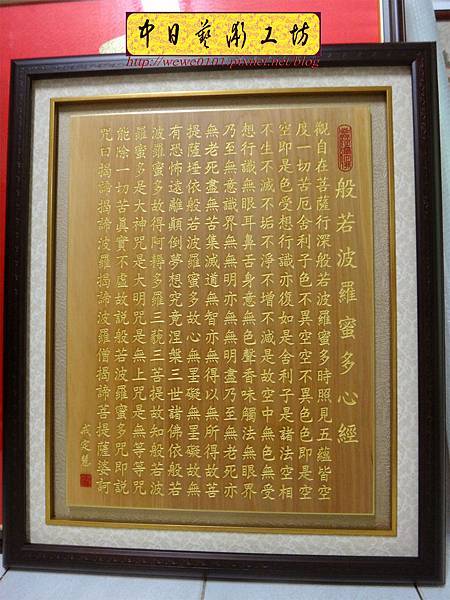 中日藝術工坊
http://wewe0101.pixnet.net/blog
般若波羅蜜多心經
觀自在菩薩行深般若波羅蜜多時照見五蘊皆空
度一切苦厄舍利子色不異空空不異色色即是空
空即是色受想行識亦復如是舍利子是諸法空相
不生不滅不垢不淨不增不減是故空中無色無受
想行識無眼耳鼻舌身意無色聲香味觸法無眼界
乃至無意識界無無明亦無無明盡乃至無老死亦
無老死盡無苦集滅道無智亦無得以無所得故菩
提薩埵依般若波羅蜜多故心無罣礙無罣礙故無
有恐怖遠離顛倒夢想究竟涅槃三世諸佛依般若
波羅蜜多故得阿耨多羅三藐三菩提故知般若波
羅蜜多是大神咒是大明咒是無上咒是無等等咒
能除一切苦真實不虛故說般若波羅蜜多咒即說
咒曰揭諦揭諦波羅揭諦波羅僧揭諦菩提薩婆訶
戒定慧